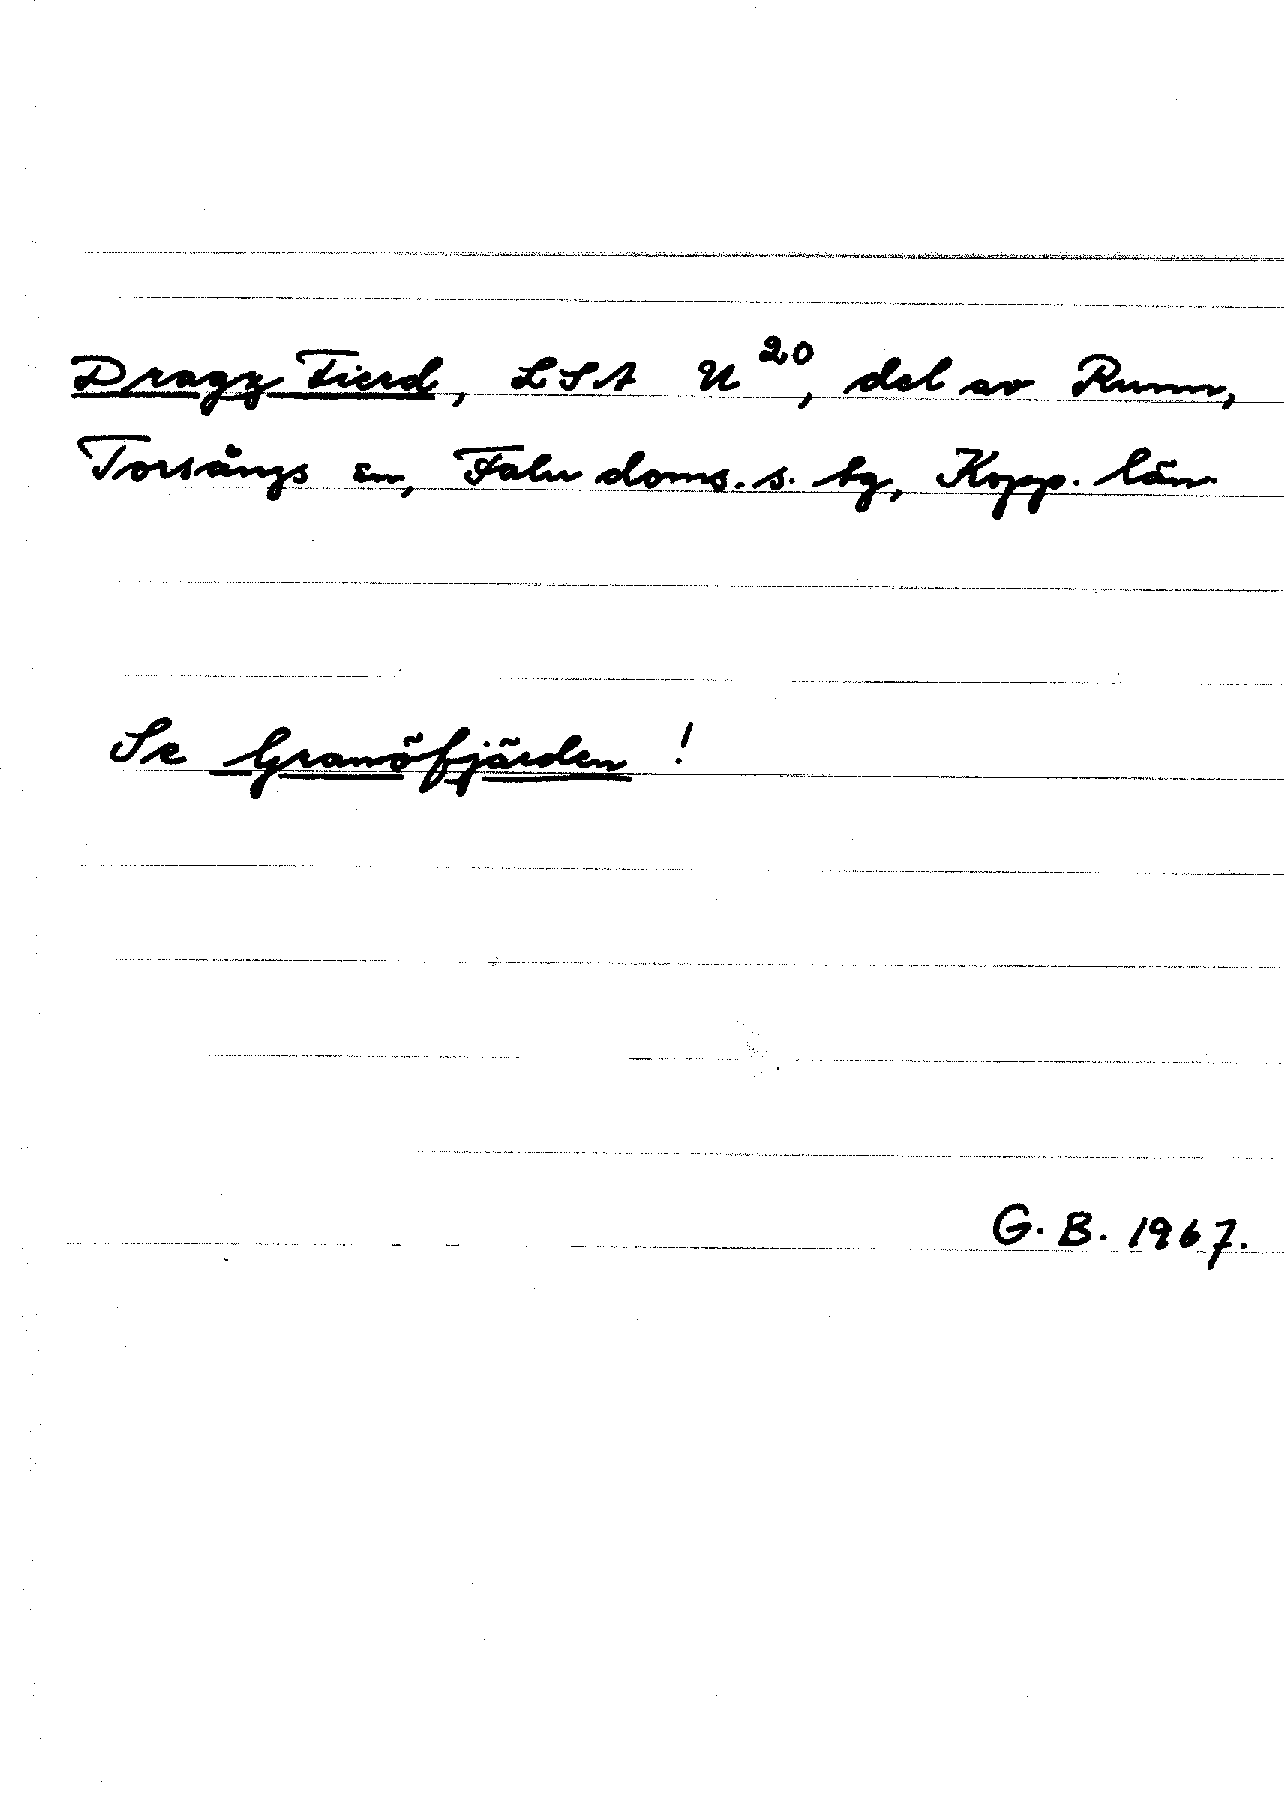 Dragz Fierd, LSA U²⁰, del av Runn,
Torsångs sn, Falu doms. s. tg, Kopp. län
Se Granöfjärden !
G. B. 1967.